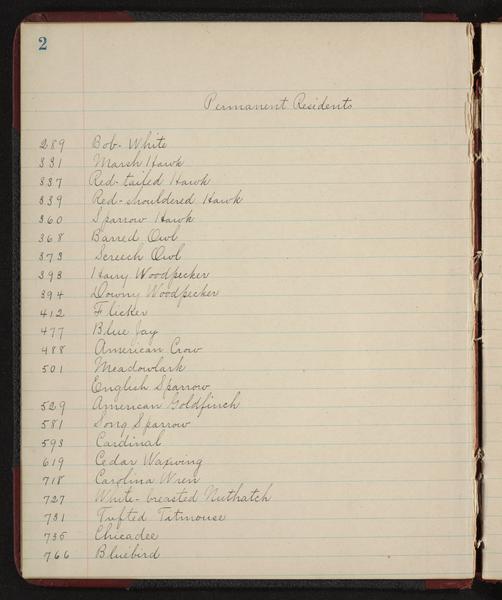 2
Permanent Residents
289 Bob-White
331 Marsh Hawk
337 Red-tailed Hawk
339 Red-shouldered Hawk
360 Sparrow Hawk
368 Barred Owl
373 Screech Owl
393 Hairy Woodpecker
394 Downy Woodpecker
412 Flicker
477 Blue Jay
488 American Crow
501 Meadowlark
English Sparrow
529 American Goldfinch
581 Song Sparrow
593 Cardinal
619 Cedar Waxwing
718 Carolina Wren
727 White-breasted Nuthatch
731 Tufted Titmouse
735 Chicadee
766 Bluebird